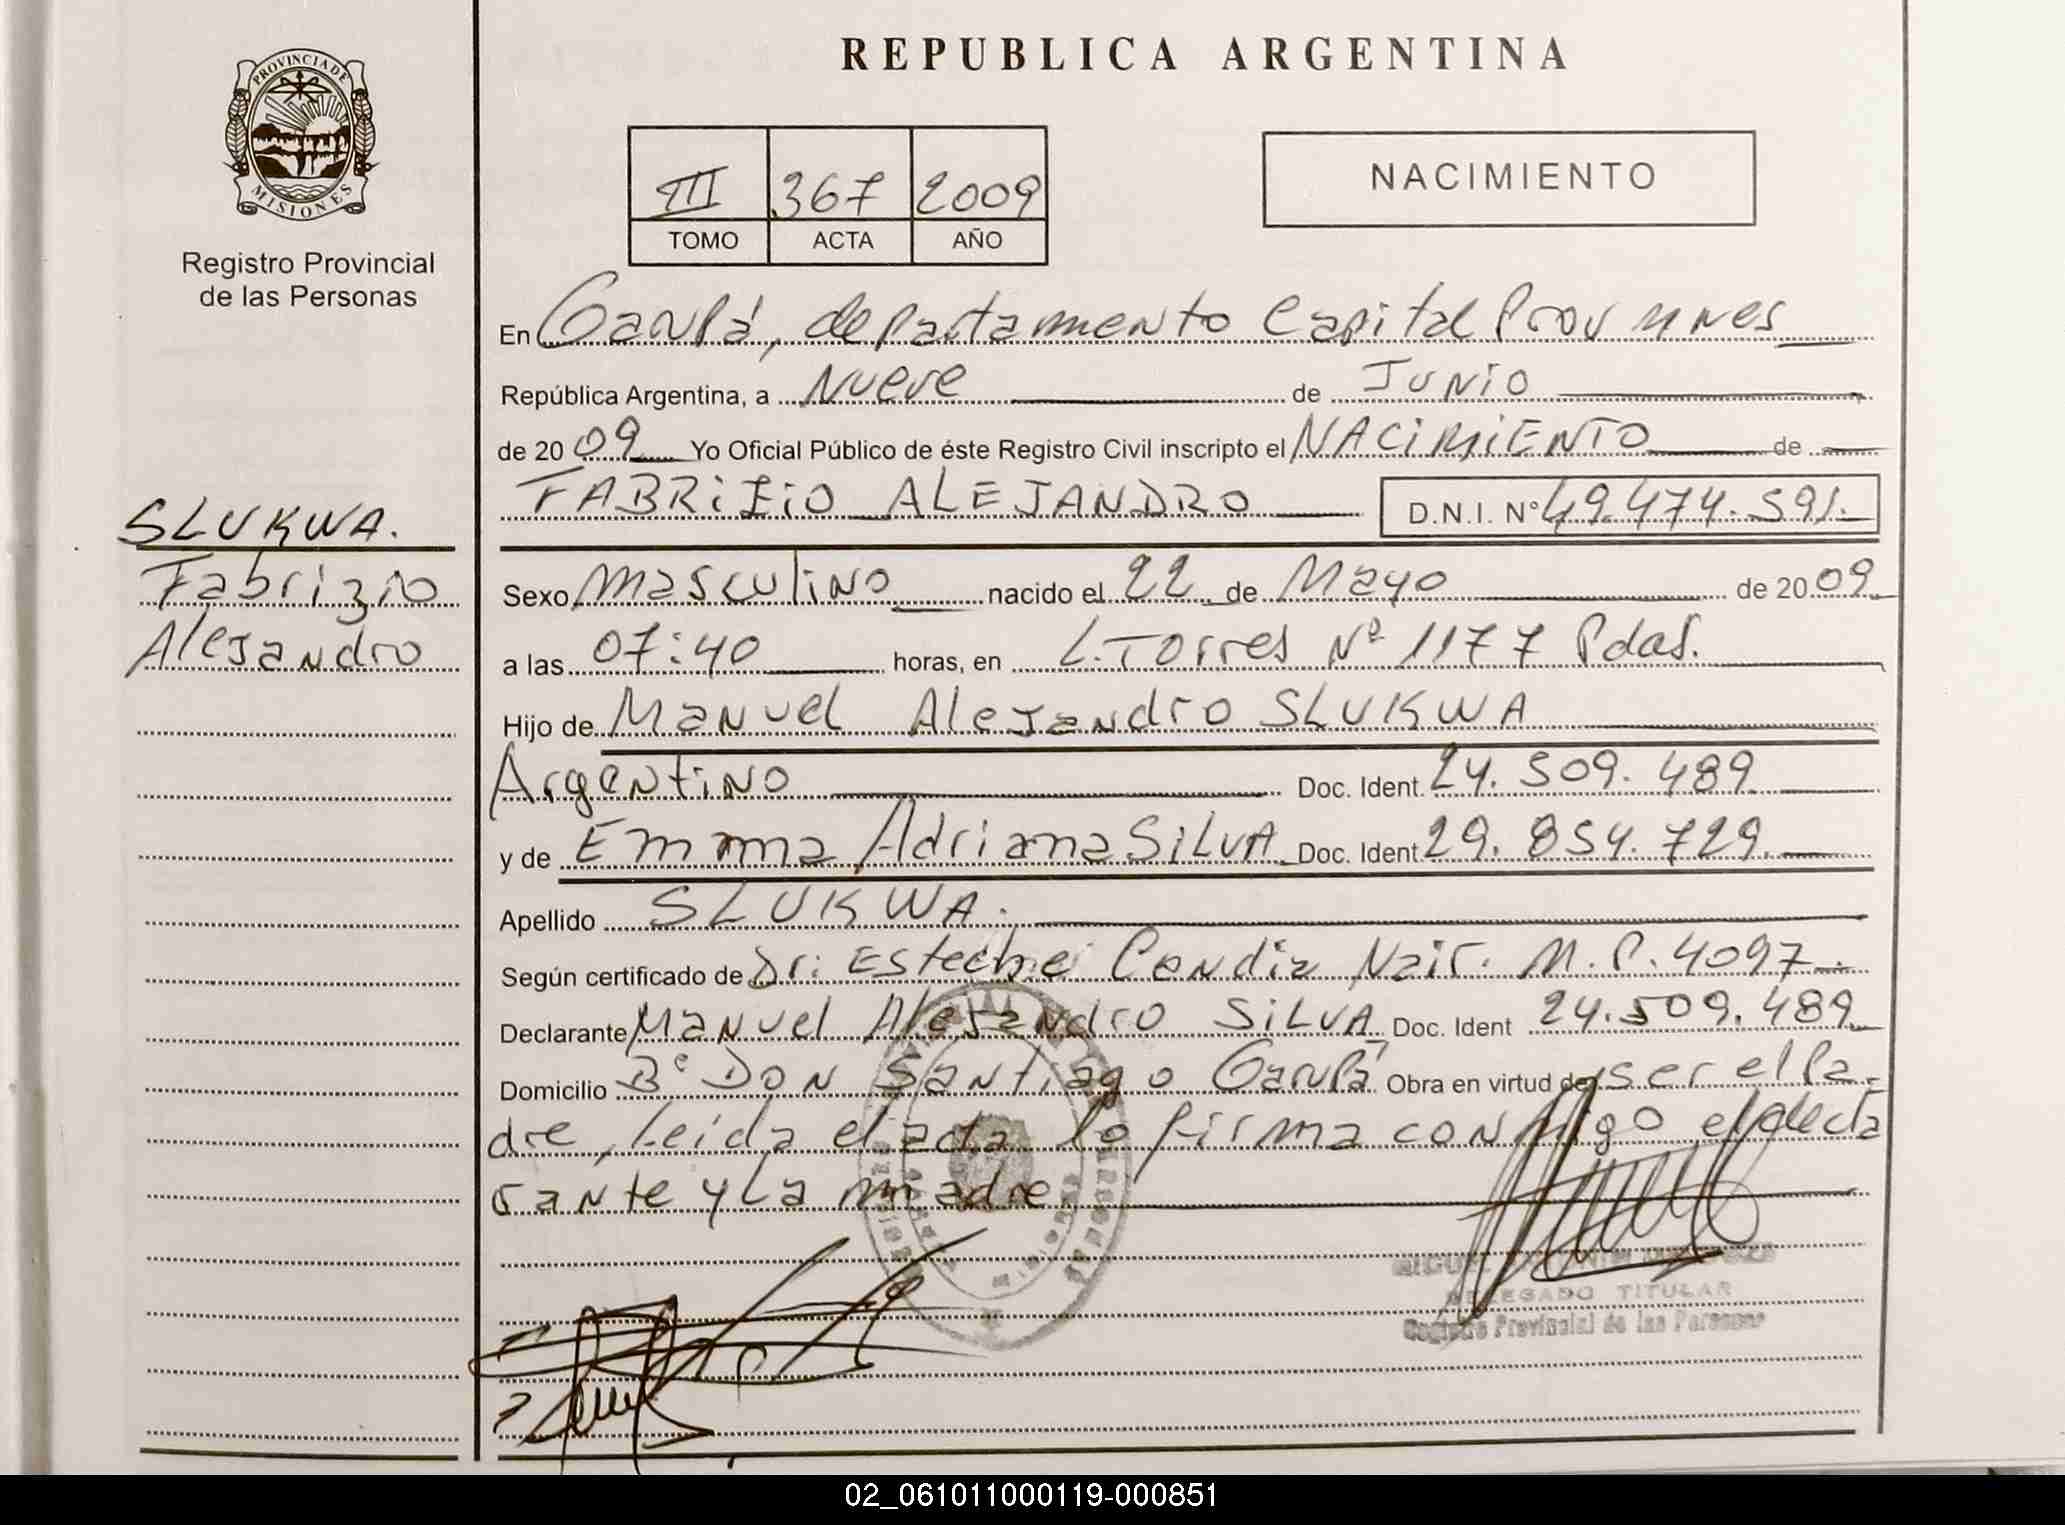 REPUBLICA ARGENTINA
PROVINCIA DE
MISIONES
Registro Provincial
de las Personas
III 367 2009
TOMO ACTA AÑO
NACIMIENTO
En Garupá, departamento Capital Prov Mnes
República Argentina, a Nueve de Junio
de 2009 Yo Oficial Público de éste Registro Civil inscripto el NACIMIENTO de
FABRIZIO ALEJANDRO D.N.I. N° 49.474.591.
SLUKWA.
Fabrizio
Alejandro
Sexo Masculino nacido el 22 de Mayo de 2009
a las 07:40 horas, en L. Torres Nº 1177 Pdas.
Hijo de Manuel Alejandro SLUKWA
Argentino Doc. Ident. 24.509.489
y de Emma Adriana SILVA Doc. Ident 29.854.729
Apellido SLUKWA.
Según certificado de Dr: Esteche Candia Nair. M.P. 4097.
Declarante Manuel Alejandro SILVA Doc. Ident 24.509.489
Domicilio Bº DON Santiago Garupá Obra en virtud de ser el Pa-
dre, Leida el acta lo firma conmigo el decla
rante y La madre
MIGUEL
DELEGADO TITULAR
Registro Provincial de las Personas
02_061011000119-000851